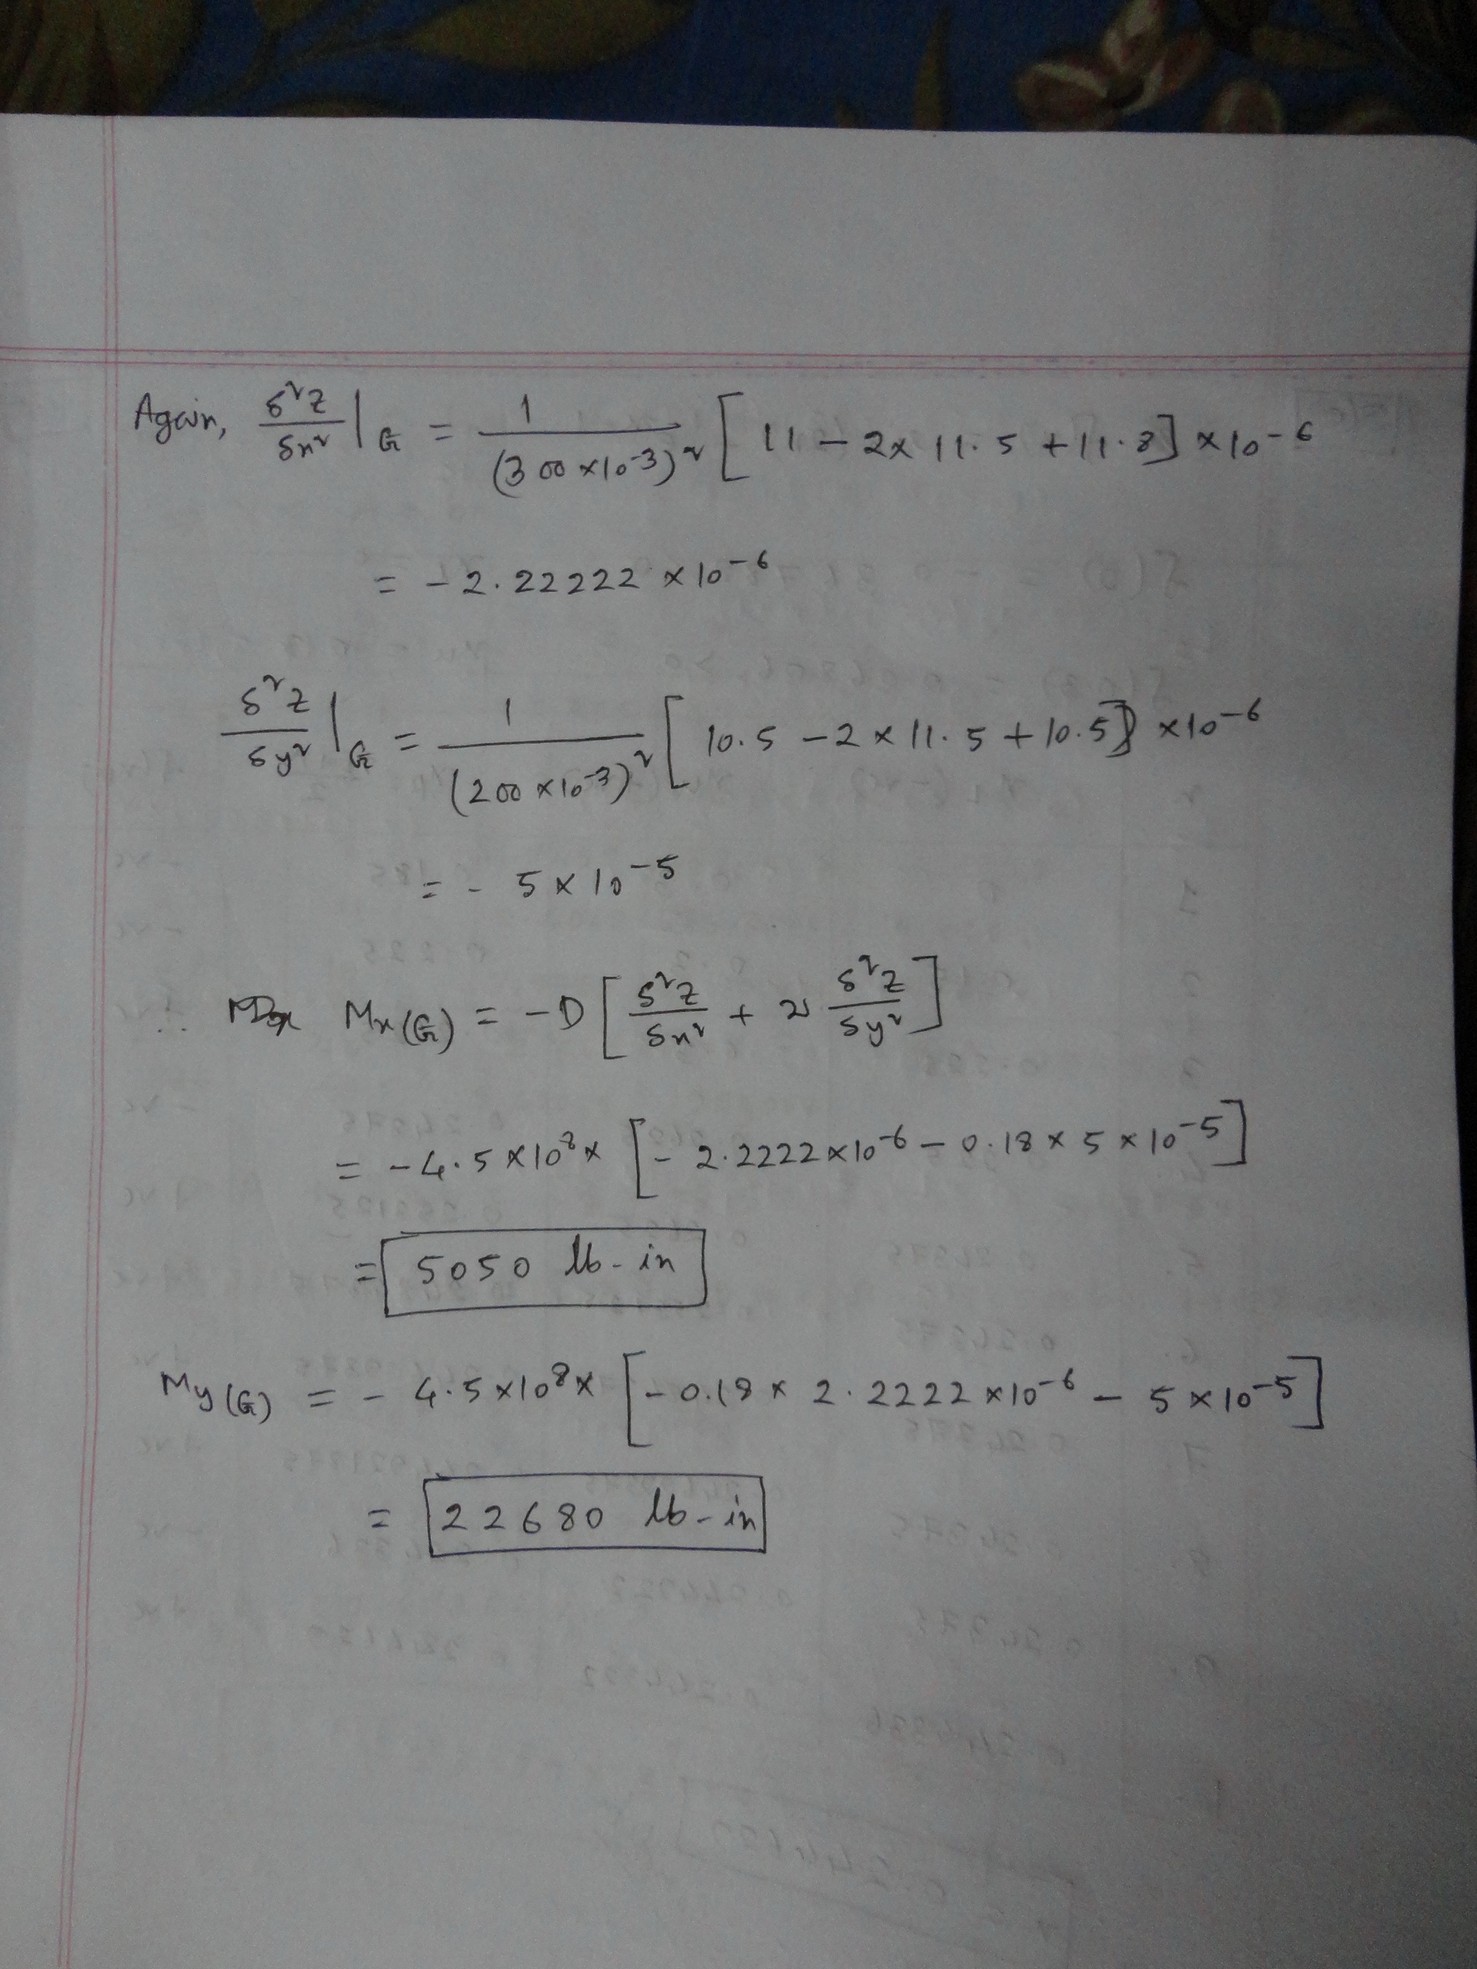 Again, δ²z/δx² |G = 1/(300 × 10-3)² [11 − 2× 11.5 + 11.8] × 10-6
= − 2.22222 × 10-6
δ²z/δy² |G = 1/(200 × 10-3)² [10.5 − 2 × 11.5 + 10.5] × 10-6
= - 5 × 10-5
∴ Mx(G) = −D [δ²z/δx² + ν δ²z/δy²]
= − 4.5 × 10⁸ × [− 2.2222 × 10-6 − 0.18 × 5 × 10-5]
= 5050 lb-in
My(G) = − 4.5 × 10⁸ × [− 0.18 × 2.2222 × 10-6 − 5 × 10-5]
= 22680 lb-in